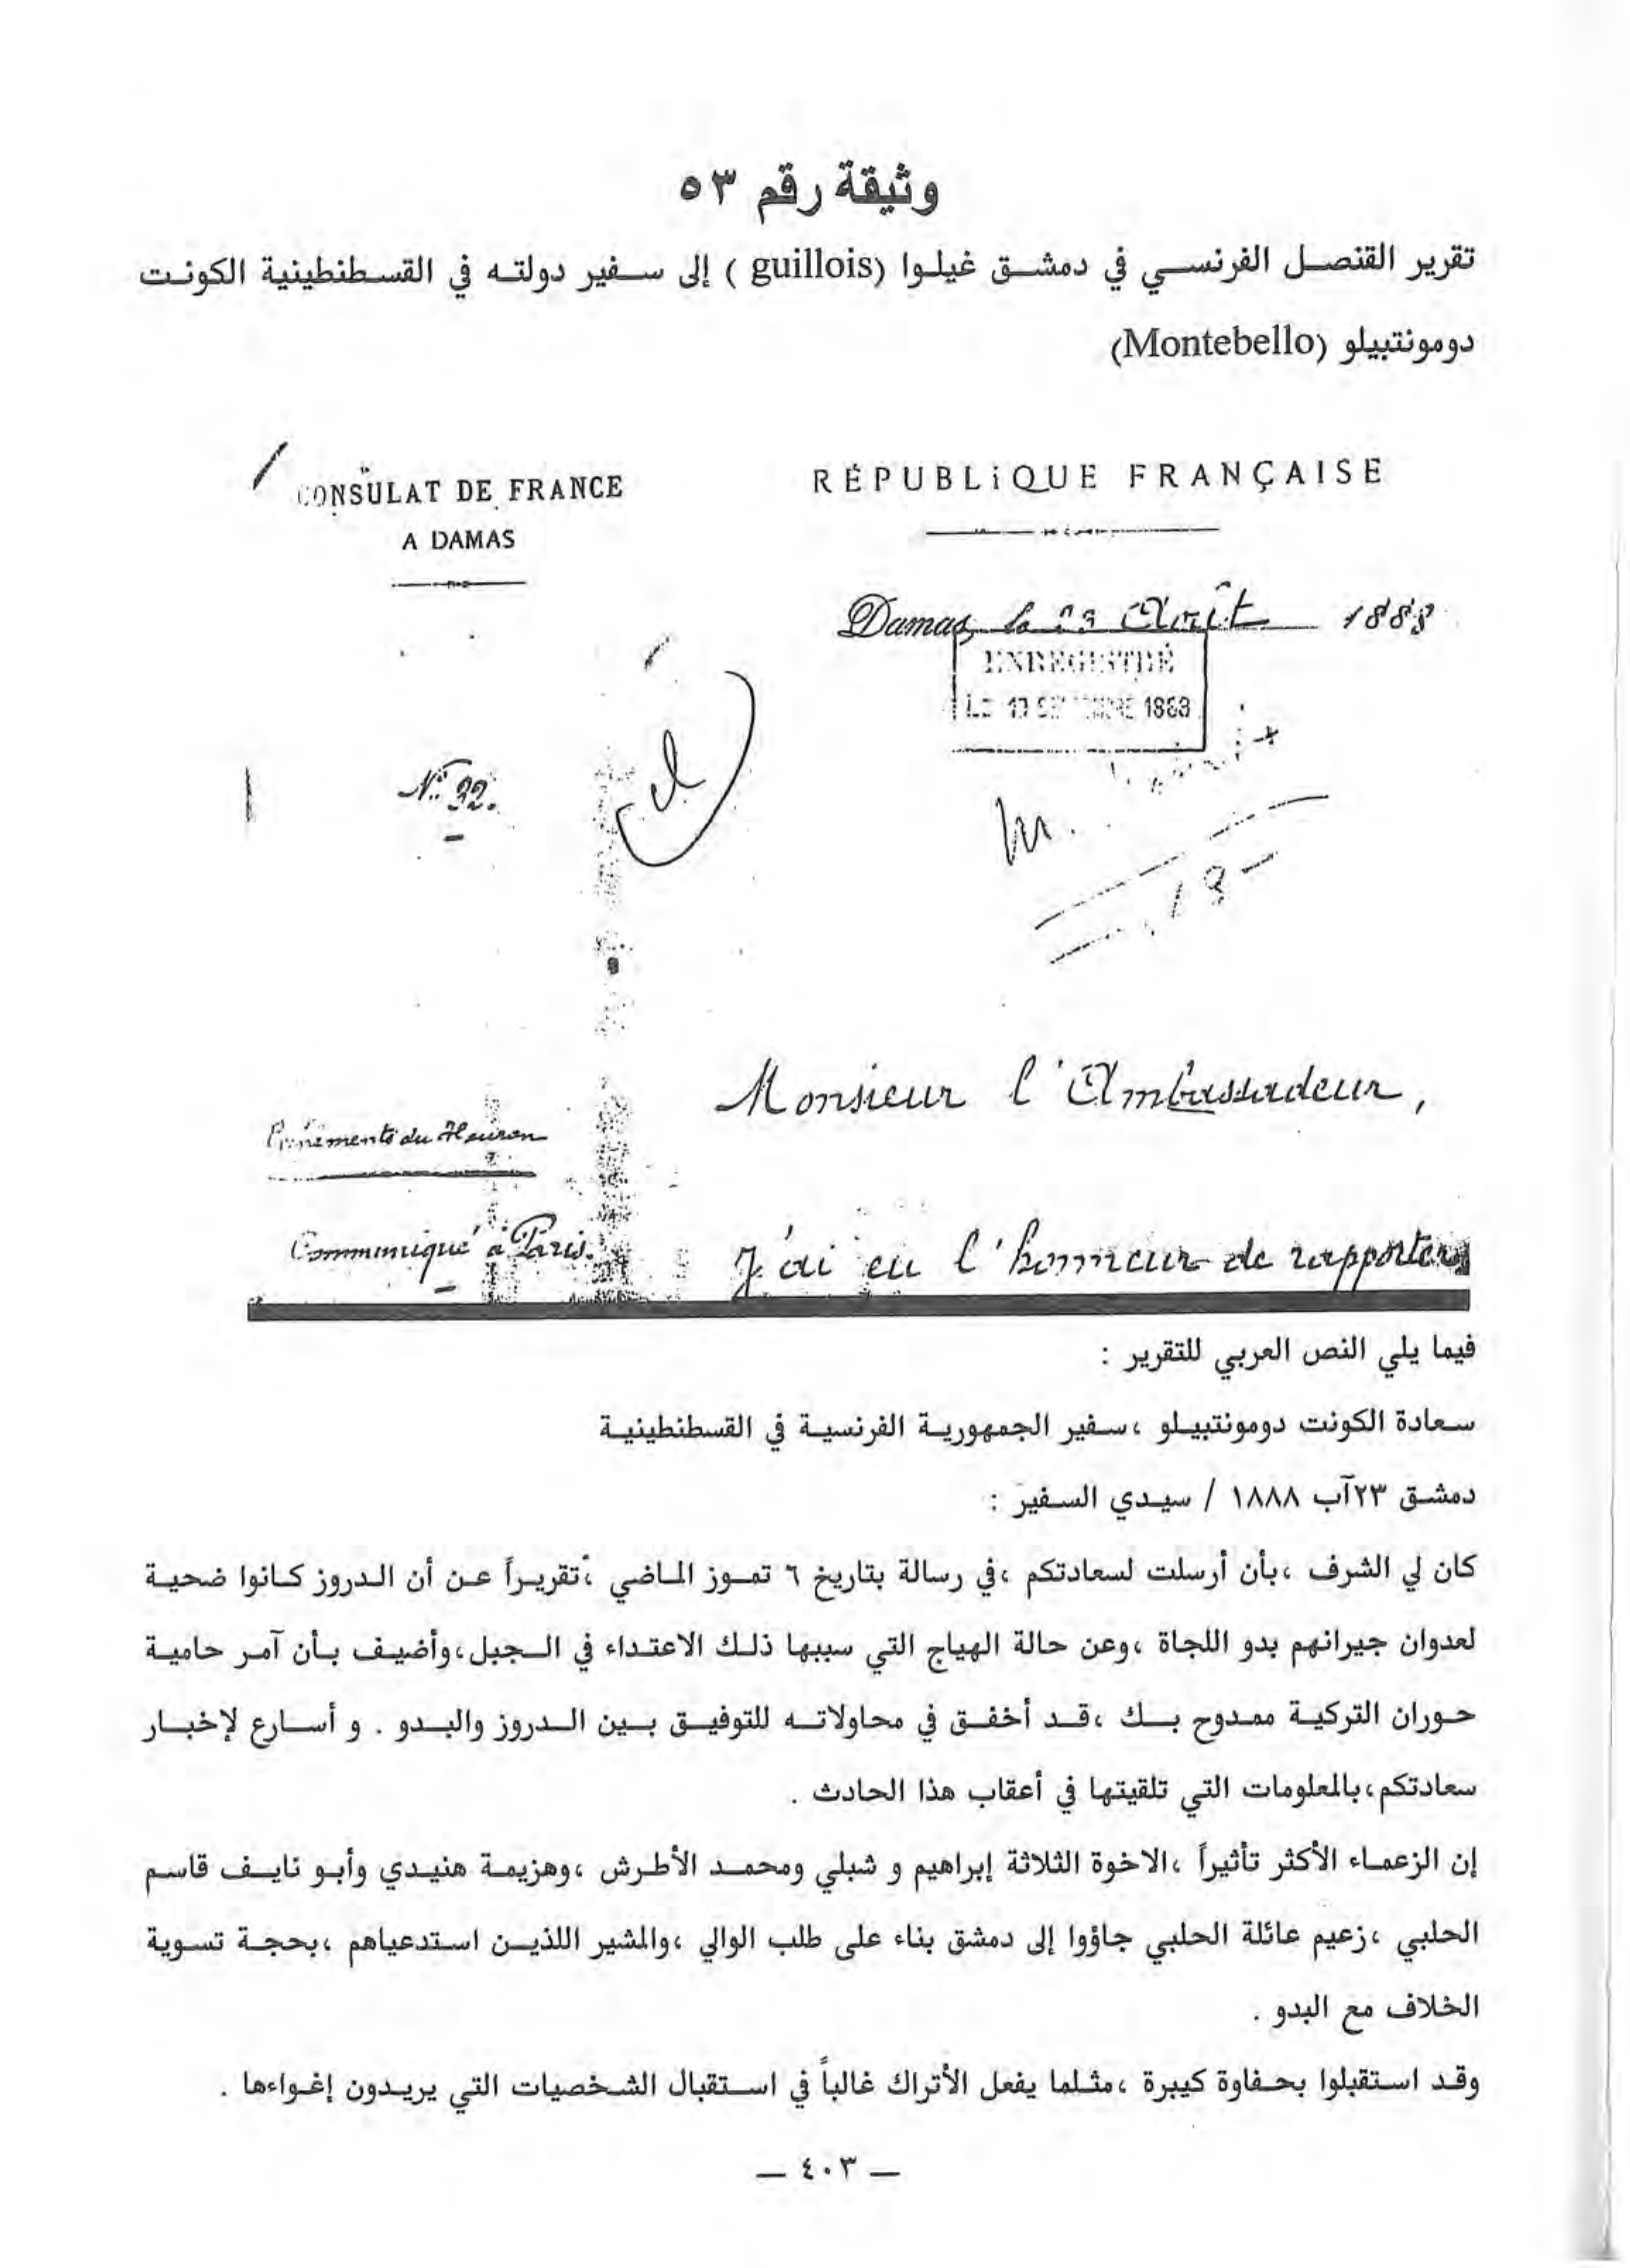 وثيقة رقم ٥٣
تقرير القنصل الفرنسي في دمشق غيلوا (guillois ) إلى سفير دولته في القسطنطينية الكونت
دومونتبيلو (Montebello)
CONSULAT DE FRANCE
A DAMAS
RÉPUBLIQUE FRANÇAISE
Damas, le 23 Août 1888
ENREGISTRÉ
LE 1888
N° 32.
Monsieur l'Ambassadeur,
du Hauran
Communiqué à Paris.
J'ai eu l'honneur de rapporter
فيما يلي النص العربي للتقرير :
سعادة الكونت دومونتبيلو ،سفير الجمهورية الفرنسية في القسطنطينية
دمشق ٢٣آب ١٨٨٨ / سيدي السفير :
كان لي الشرف ،بأن أرسلت لسعادتكم ،في رسالة بتاريخ ٦ تموز الماضي ،تقريراً عن أن الدروز كانوا ضحية
لعدوان جيرانهم بدو اللجاة ،وعن حالة الهياج التي سببها ذلك الاعتداء في الجبل،وأضيف بأن آمر حامية
حوران التركية ممدوح بك ،قد أخفق في محاولاته للتوفيق بين الدروز والبدو . و أسارع لإخبار
سعادتكم،بالمعلومات التي تلقيتها في أعقاب هذا الحادث .
إن الزعماء الأكثر تأثيراً ،الاخوة الثلاثة إبراهيم و شبلي ومحمد الأطرش ،وهزيمة هنيدي وأبو نايف قاسم
الحلبي ،زعيم عائلة الحلبي جاؤوا إلى دمشق بناء على طلب الوالي ،والمشير اللذين استدعياهم ،بحجة تسوية
الخلاف مع البدو .
وقد استقبلوا بحفاوة كبيرة ،مثلما يفعل الأتراك غالباً في استقبال الشخصيات التي يريدون إغواءها .
— ٤٠٣ —